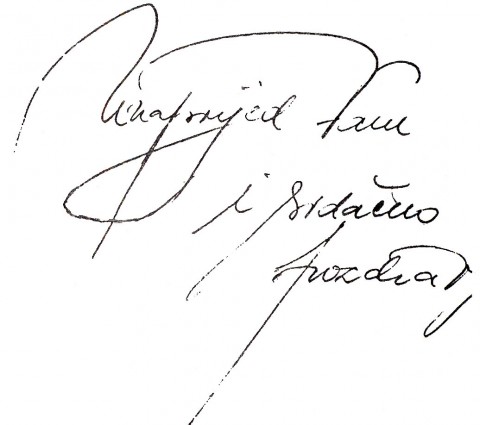 Unaprijed Vam
i srdačno
pozdrav,